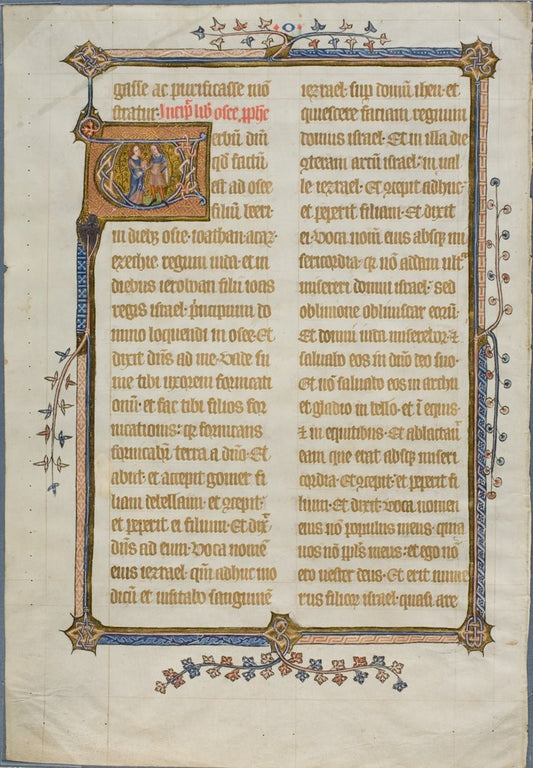 O
gasse ac purificasse mō
stratur. Incip̄ lib̄ osee p̄phe
erbū dn̄i
qđ factū
est ad osee
filiū beeri
in dieb; osie ioathan achaz
ezechie regum iuda et in
diebus ieroboan filii ioas
regis israel. Principium do
mino loquendi in osee. Et
dixit dn̄s ad me. Vade su
me tibi uxorem fornicati
onum. et fac tibi filios for
nicationis: q̄ fornicans
fornicabit̄ terra a dn̄o. Et
abiit. et accepit gomer fi
liam debelaim. et ꝯcepit:
et peperit ei filium. Et dix̄
dn̄s ad eum. Voca nomē
eius iezrael. qm̄ adhuc mo
dicū et visitabo sanguinē
iezrael. sup̄ domū iheu. et
quiescere faciam regnum
domus israel. Et in illa die
ꝯteram arcū israel. in val
le iezrael. Et ꝯcepit adhuc:
et peperit filiam. Et dixit
ei. Voca nom̄ eius absq; mi
sericordia. q̄ nō addam ult̄
misereri domui israel. sed
oblivione obliviscar eorū.
Et domui iuda miserebor. ⁊
salvabo eos in dn̄o deo suo.
Et nō salvabo eos in archu
et gladio in bello. et ī equis
⁊ in equitibus. Et ablactav̄
eam que erat absq; miseri
cordia. Et ꝯcepit: et peperit fi
lium. Et dixit. Voca nomen
eius nō populus meus. quia
vos nō ppl̄s meus: et ego nō
ero vester deus. Et erit nume
rus filior̄ israel. quasi are